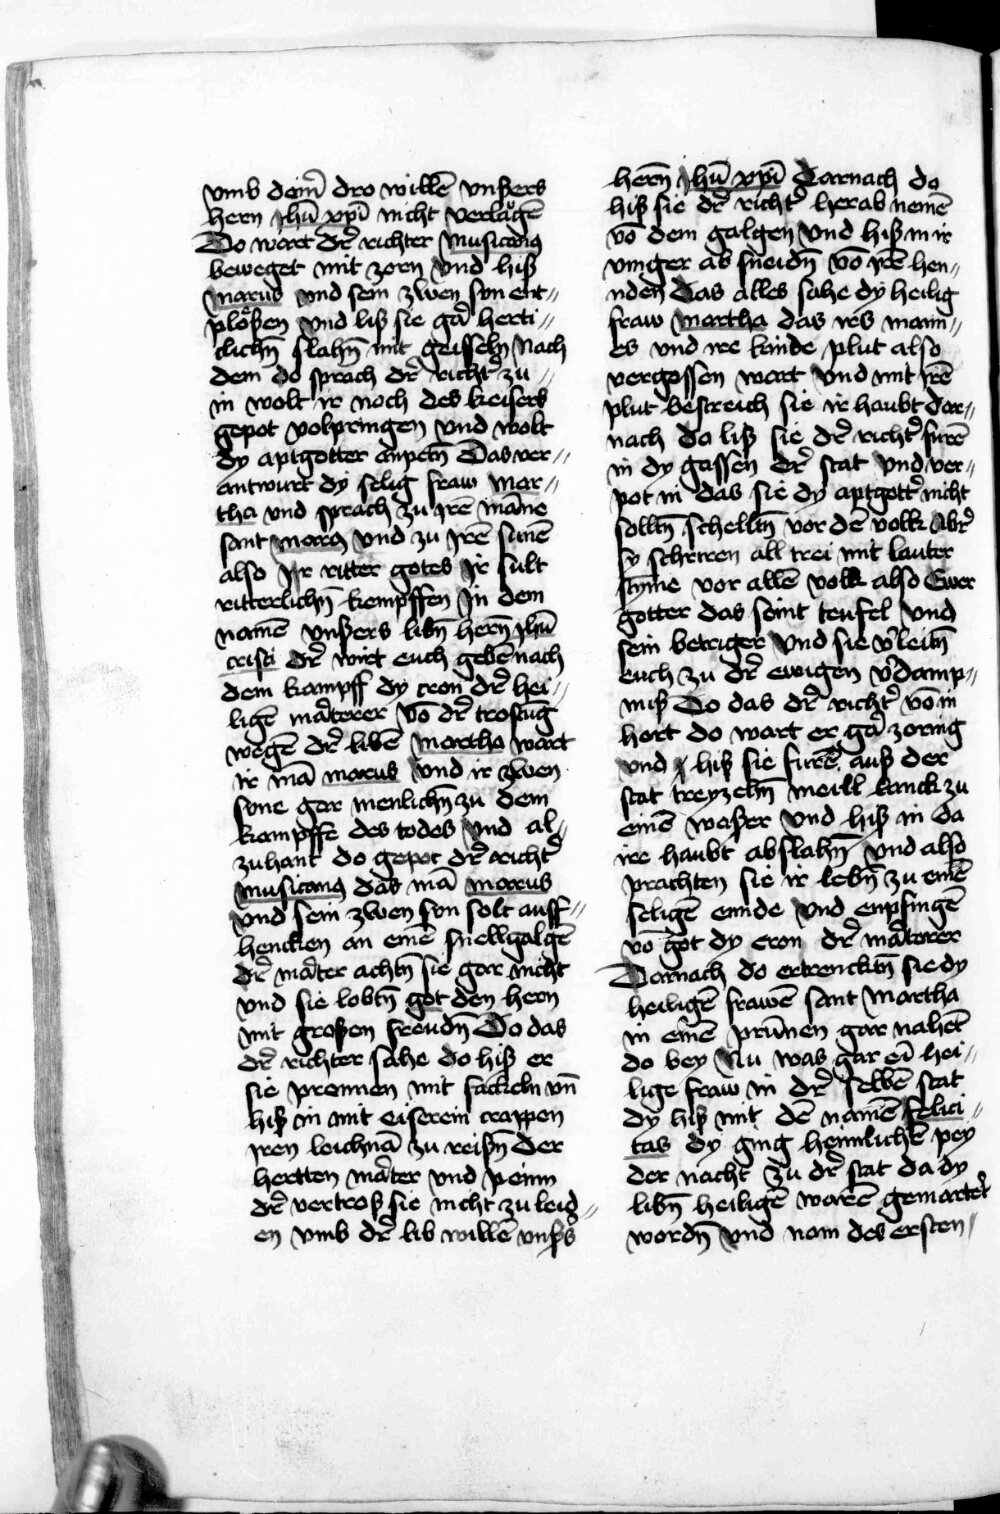 vmb deinē dro willē vnßers
hern ihū xpī nicht verlågē
Do wart dr̄ richter musicanꝰ
beweget mit zorn vnd hiß
marus vnd sein zwen sun ent〃
plößen vnd liß sie gar herti〃
clichn̄ slahn̄ mit geisseln Nach
dem do sprach dr̄ richtr̄ zu〃
in wolt ir noch des keisers
gepot volpringen vnd wolt
dy aptgotter anpetn̄ Das ver〃
antwurt dy selig fraw mar〃
tha vnd sprach zu irē māne
sant marꝰ vnd zu irē sunē
also Ir ritter gotes Ir sult
ritterlichn̄ kempffen In dem
namē vnßers libn̄ hern̄ ihū
cristi dr̄ wirt euch gebē nach
dem kampff dy cron dr̄ hei〃
ligē mārterer vō dr̄ trostūg
wegē dr̄ libē martha wart
ir mā marus vnd ir zwen
sone gar menlichn̄ zu dem
kampffe des todes vnd al〃
zuhant do gepot dr̄ richtr̄
musicanꝰ das mā marus
vnd sein zwen sun solt auff〃
hencken an einē snellgalgē
dr̄ mārter achtn̄ sie gar nicht
vnd sie lobtn̄ got den hern
mit großen freudn̄ Do das
dr̄ richter sahe do hiß er
sie prennen mit fackeln vn̄
hiß in mit eiserein crappen
iren leichnā zu reißn̄ der
hertten mārter vnd peinn
dr̄ vertroß sie nicht zu leid〃
en vmb dr̄ lib willē vnßs̄
hern̄ ihū xpī Darnach do
hiß sie dr̄ richtr̄ herab nemē
vō dem galgen vnd hiß in ir
vinger ab sneidn̄ vō irē hen〃
nden Das alles sahe dy heilig
fraw martha das irs mann〃
es vnd ire kinde plut also
vergossen wart vnd mit irē
plut bestreich sie ir haubt dar〃
nach do liß sie dr̄ richtr̄ furē
in dy gassen dr̄ stat vnd ver〃
pot in das sie dy aptgottr̄ nicht
solltn̄ scheltn̄ vor dē volk Abr̄
sy schriren all trei mit lauter
stime vor allē volk also Ewer
gotter das seint teufel vnd
sein betriger vnd sie v̄leitn̄
euch zu dr̄ ewigen v̄damp〃
niß Do das dr̄ richtr̄ vō in
hort do wart er gar zornig
vnd hiß sie furē auß der
stat treyzehn̄ meill lanck zu
einē waßer vnd hiß in da
ire haubt abslahn̄ vnd also
prachten sie ir lebn̄ zu einē
seligē ennde vnd enpfingē
vō got dy cron dr̄ mārterer
Darnach do ertrencktn̄ sie dy
heiligē frawē sant Martha
in einē prūnen gar nahet
do bey Nu was gar eī hei〃
lige fraw in dr̄ selbē stat
dy hiß mit dē namē felici〃
tas dy ging heimlichē pey
der nacht zu dr̄ stat da dy
libn̄ heiligē warē gemartet
wordn̄ vnd nam des ersten〃